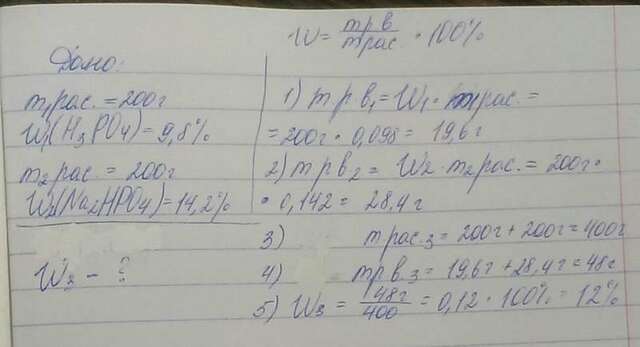 W = mрв / mрас. · 100%
Дано:
m₁рас. = 200г
W₁(H₃PO₄) = 9,8%
m₂рас. = 200г
W₂(Na₂HPO₄) = 14,2%
W₃ - ?
1) mрв₁ = W₁ · mрас. =
= 200г · 0,098 = 19,6г
2) mрв₂ = W₂ · m₂рас. = 200г ·
· 0,142 = 28,4г
3) mрас.₃ = 200г + 200г = 400г
4) mрв.₃ = 19,6г + 28,4г = 48г
5) W₃ = 48г / 400 = 0,12 · 100% = 12%